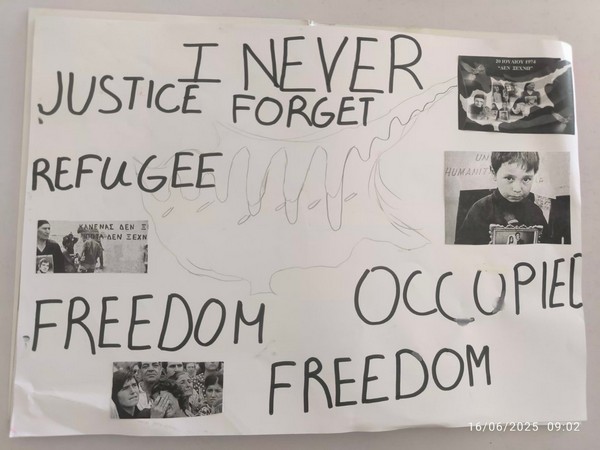 I NEVER
FORGET
JUSTICE
REFUGEE
FREEDOM
OCCUPIED
FREEDOM
20 ΙΟΥΛΙΟΥ 1974
"ΔΕΝ ΞΕΧΝΩ"
UN
HUMANIT
ΚΑΝΕΝΑΣ ΔΕΝ ΞΕ
ΔΕΝ ΞΕΧΝ
16/06/2025 09:02